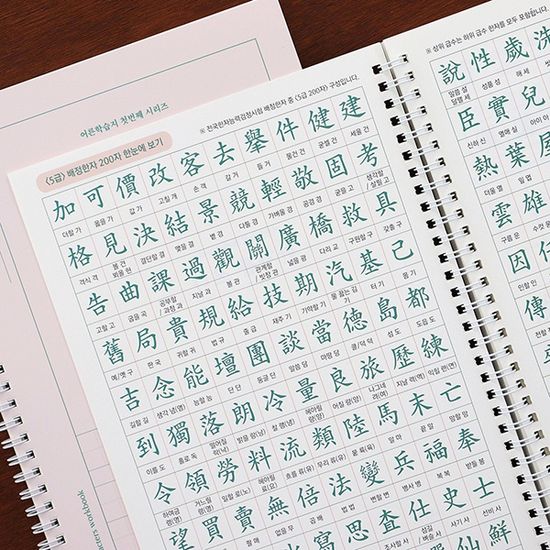 어른학습지 첫번째 시리즈
※ 전국한자능력검정시험 배정한자 중 〈5급 200자〉 구성입니다.
〈5급〉 배정한자 200자 한눈에 보기
加 可 價 改 客 去 擧 件 健 建
더할 가 옳을 가 값 가 고칠 개 손 객 갈 거 들 거 물건 건 굳셀 건 세울 건
格 見 決 結 景 競 輕 敬 固 考
격식 격 볼 견 뵈올 현 결단할 결 맺을 결 볕 경 다툴 경 가벼울 경 공경 경 굳을 고 생각할/살필 고
告 曲 課 過 觀 關 廣 橋 救 具
고할 고 굽을 곡 공부할/과정 과 지날 과 볼 관 관계할/빗장 관 넓을 광 다리 교 구원할 구 갖출 구
舊 局 貴 規 給 技 期 汽 基 己
예/옛 구 판 국 귀할 귀 법 규 줄 급 재주 기 기약할 기 물 끓는 김 기 터 기 몸 기
吉 念 能 壇 團 談 當 德 島 都
길할 길 생각 념(염) 능할 능 단 단 둥글 단 말씀 담 마땅 당 클/덕 덕 섬 도 도읍 도
到 獨 落 朗 冷 量 良 旅 歷 練
이를 도 홀로 독 떨어질 락(낙) 밝을 랑(낭) 찰 랭(냉) 헤아릴 량(양) 어질 량(양) 나그네 려(여) 지날 력(역) 익힐 련(연)
令 領 勞 料 流 類 陸 馬 末 亡
하여금 령(영) 거느릴 령(영) 일할 로(노) 헤아릴 료(요) 흐를 류(유) 무리 류(유) 뭍 륙(육) 말 마 끝 말 망할 망
望 買 賣 無 倍 法 變 兵 福 奉
없을 무 곱 배 법 법 변할 변 병사 병 복 복 받들 봉
寫 思 査 仕 史 士
※ 상위 급수는 하위 급수 한자를 모두 포함합니다.
說 性 歲 洗
말씀 설 달랠 세 성품 성 해 세
臣 實 兒
신하 신 열매 실
熱 葉 屋
더울 열 잎 엽
雲 雄
구름 운
因
인할 인
傳